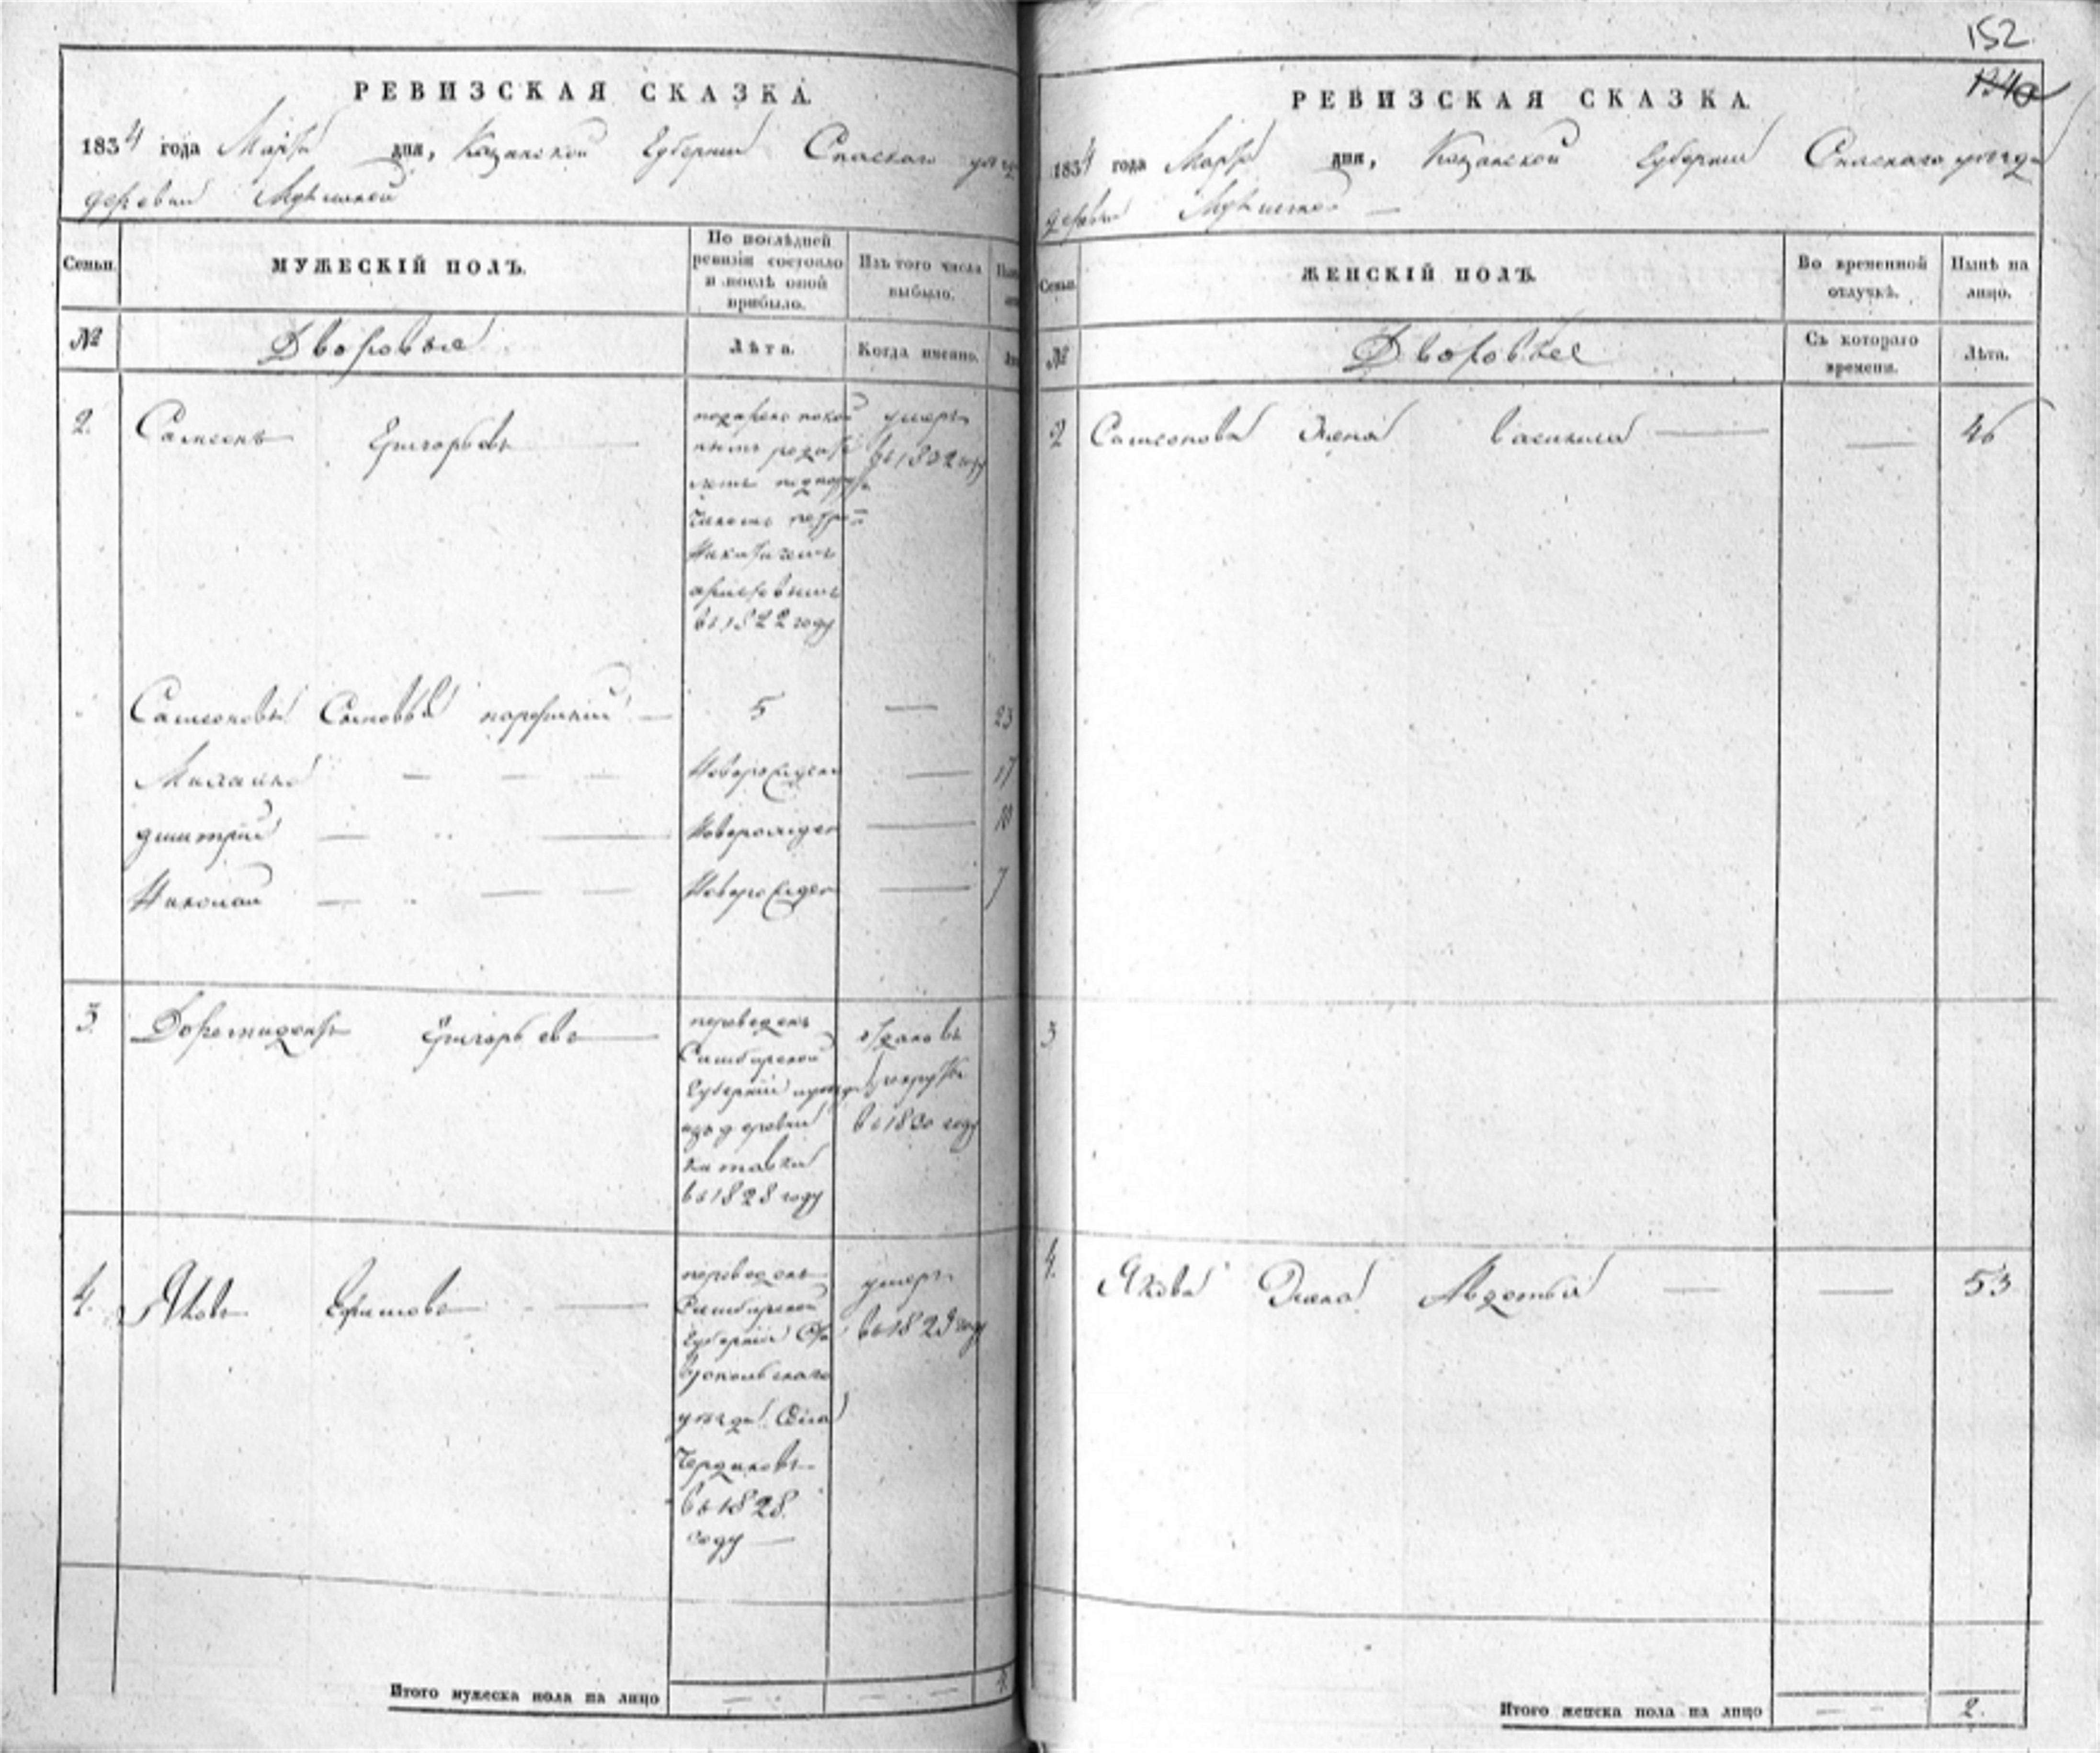 РЕВИЗСКАЯ СКАЗКА.
1834 года Марта дня, Казанской Губернии Спаскаго уезда
деревни
Семьи.
МУЖЕСКІЙ ПОЛЪ.
По послѣдней ревизіи состояло и послѣ оной прибыло.
Изъ того числа выбыло.
№
Дворовые
Лѣта.
Когда именно.
2.
Самсонъ Григорьевъ
умеръ
въ 1832 году
въ 1822 году
Самсоновы Сыновья
5
23
Михайла
Новорожден
17
Дмитрий
Новорожден
10
Николай
Новорожден
7
3.
Дормидонтъ Григорьевъ
переведенъ
Симбирской
Губернии
деревни
въ 1828 году
отданъ въ
рекруты
въ 1830 году
4.
Яковъ Ефимовъ
переведенъ
Симбирской
Губернии Ста
вропольскаго
уезда Села
Чердаковъ
въ 1828
году
умеръ
въ 1829 году
Итого мужеска пола на лицо
4
152
1340
РЕВИЗСКАЯ СКАЗКА.
1834 года Марта дня, Казанской Губернии Спаскаго уезда
деревни
Семьи.
ЖЕНСКІЙ ПОЛЪ.
Во временной отлучкѣ.
Нынѣ на лицо.
№
Дворовые
Съ котораго времени.
Лѣта.
2
Самсонова Жена Василиса
46
3
4.
Якова Жена Авдотья
53
Итого женска пола на лицо
2.